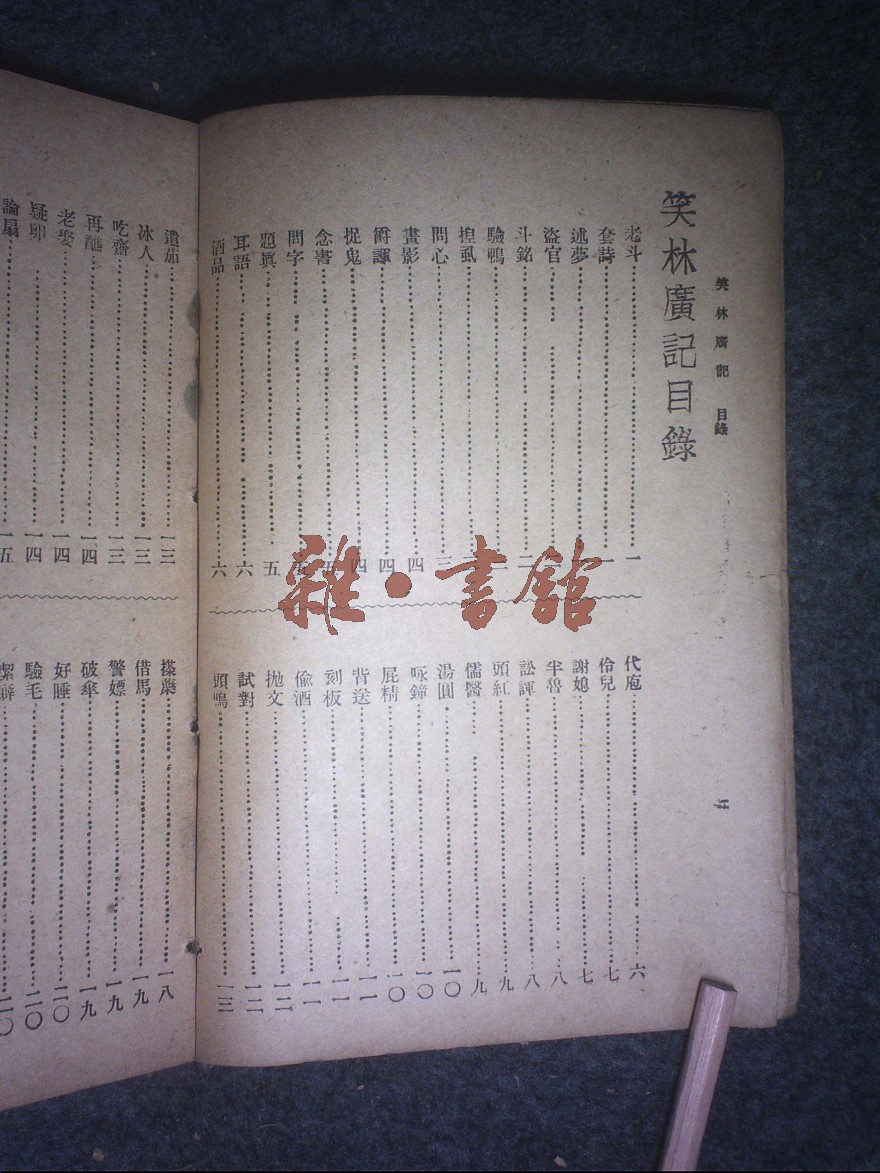 笑林廣記 目錄
笑林廣記目錄
老斗 一
套詩 一
述夢
盜官
斗銘 二
驗鴨
捏虱
問心 三
畫影 四
爵譚 四
捉鬼 四
念書 五
問字 五
題眞 五
耳語 六
酒品 六
代庖 六
伶兒 七
謝媳 七
半魯 八
訟諢 八
頭紅 九
儒醫 九
湯圓 一〇
咏鐘 一〇
屁精 一〇
背送 一一
刻板 一一
偸酒 一一
拋文 一二
試對 一二
頭鳴 一三
遺茄 一三
冰人 一三
吃齋 一三
再醮 一四
老娶 一四
疑卵 一四
論扇 一五
搽藥 一八
借馬 一九
警嫖 一九
破傘 一九
好睡 二〇
驗毛 二〇
潔癖 二〇
雜·書館